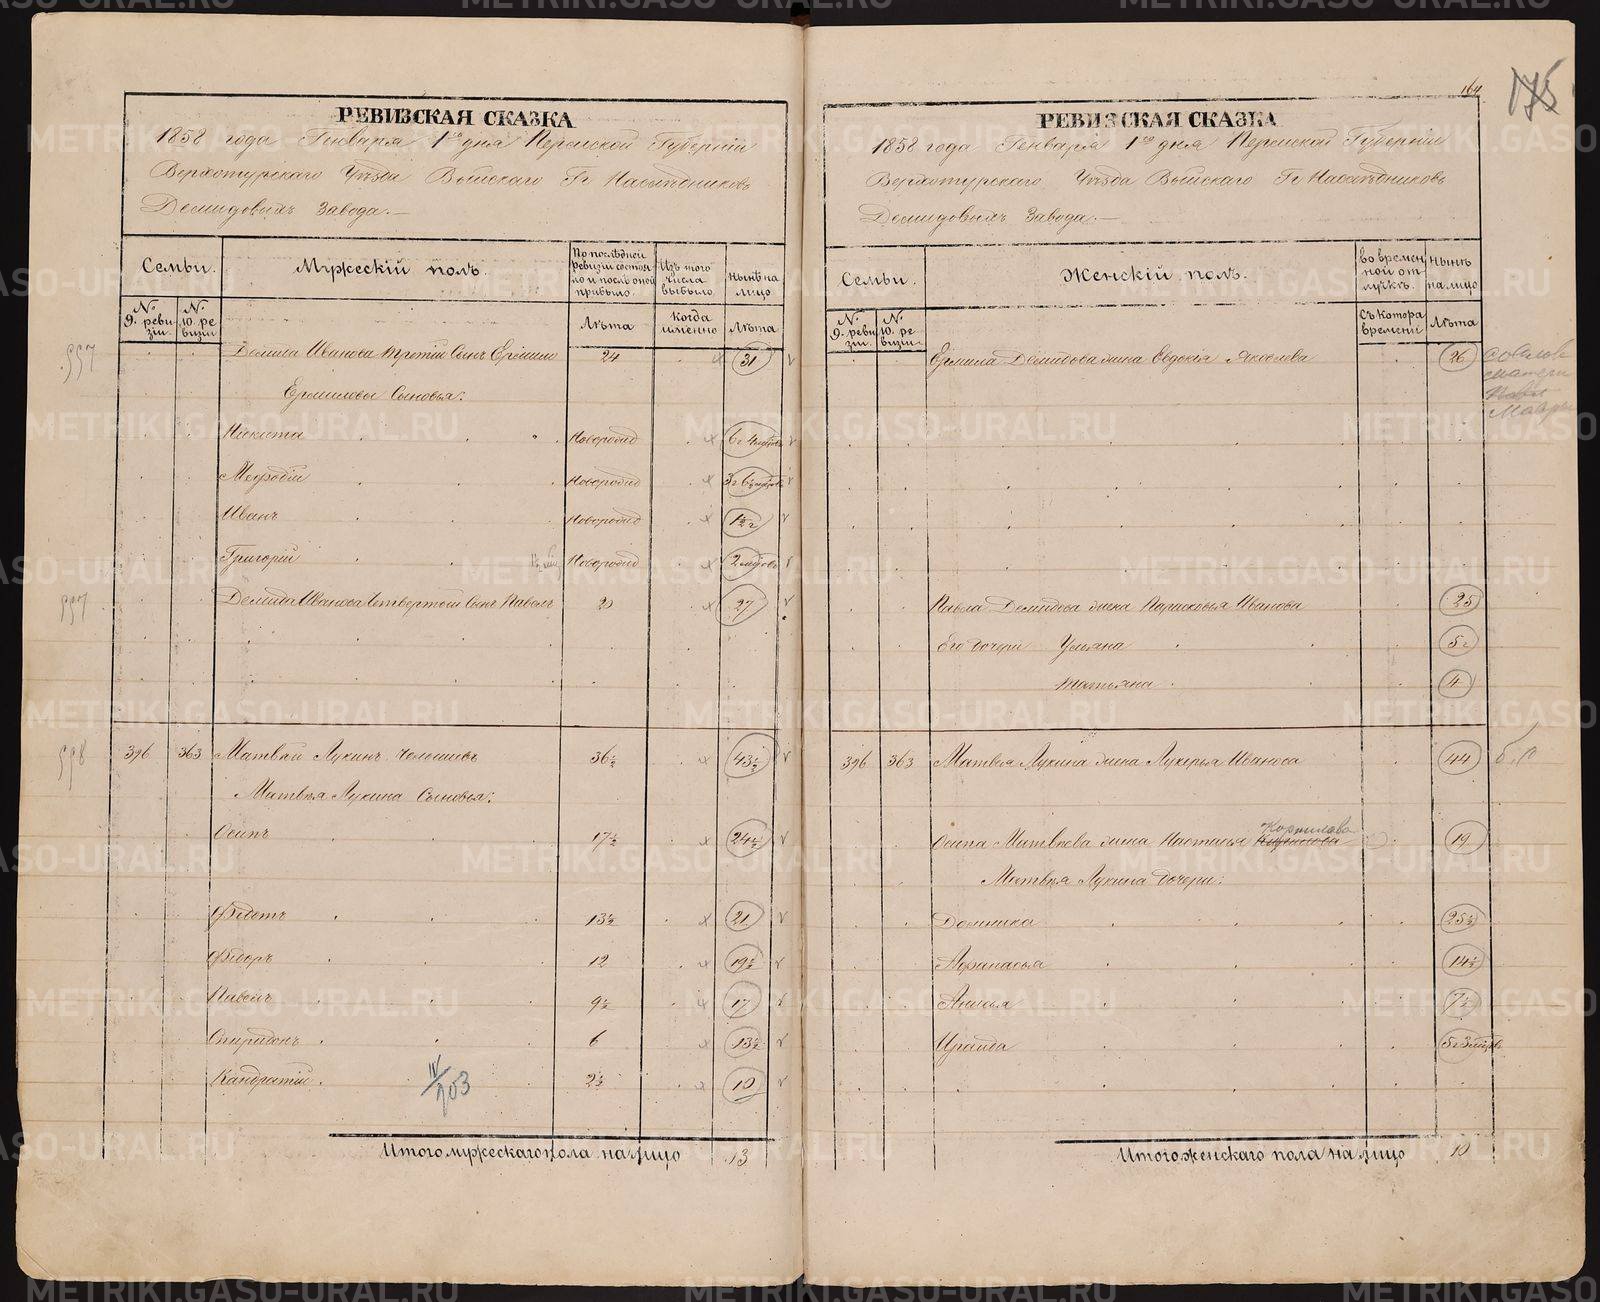 РЕВИЗСКАЯ СКАЗКА
1858 года Генваря 1го дня Пермской Губернiи
Верхотурскаго Уѣзда Выйскаго Гг Наслѣдниковъ
Демидовыхъ Завода.—
Семьи.
Мужескiй полъ.
По послѣдной ревизiи состояло и послѣ оной прибыло.
Изъ того числа выбыло.
Нынѣ на лицо
№ 9. ревизiи.
№ 10. ревизiи
Лѣта
Когда именно
Лѣта
557
Демида Иванова третiй Сынъ Ермилъ 24 31
Ермиловы Сыновья:
Никита Новорожд 6г 4
Меѳодiй Новорожд 3г 6
Иванъ Новорожд 1½ г
Григорiй Новорожд 2
557
Демида Иванова Четвертой Сынъ Павелъ 20 27
558
396 363 Матвѣй Лукинъ 36½ 43½
Матвѣя Лукина Сыновья:
Осипъ 17½ 24½
Ѳедотъ 13½ 21
Ѳедоръ 12 19½
Павелъ 9½ 17
Спиридонъ 6 13½
Кандратiй 2½ 10
IV/203
Итого мужескаго пола на лицо 13
164
175
РЕВИЗСКАЯ СКАЗКА
1858 года Генваря 1го дня Пермской Губернiи
Верхотурскаго Уѣзда Выйскаго Гг Наслѣдниковъ
Демидовыхъ Завода.—
Семьи.
Женскiй полъ.
Во временной отлучкѣ.
Нынѣ на лицо
№ 9. ревизiи.
№ 10. ревизiи.
Съ котора времени
Лѣта
Ермила Демидова жена Евдокiя Яковлева 26
Павла Демидова жена Парасковья Иванова 25
Его дочери Ульяна 5г
Татьяна 4
396 363 Матвѣя Лукина жена Лукерья Иванова 44
Корнилова
Осипа Матвѣева жена Настасья 19
Матвѣя Лукина дочери:
Домника 25½
Афанасья 14½
Анисья 7½
Ираида 5г 3
Итого женскаго пола на лицо 10
METRIKI.GASO-URAL.RU